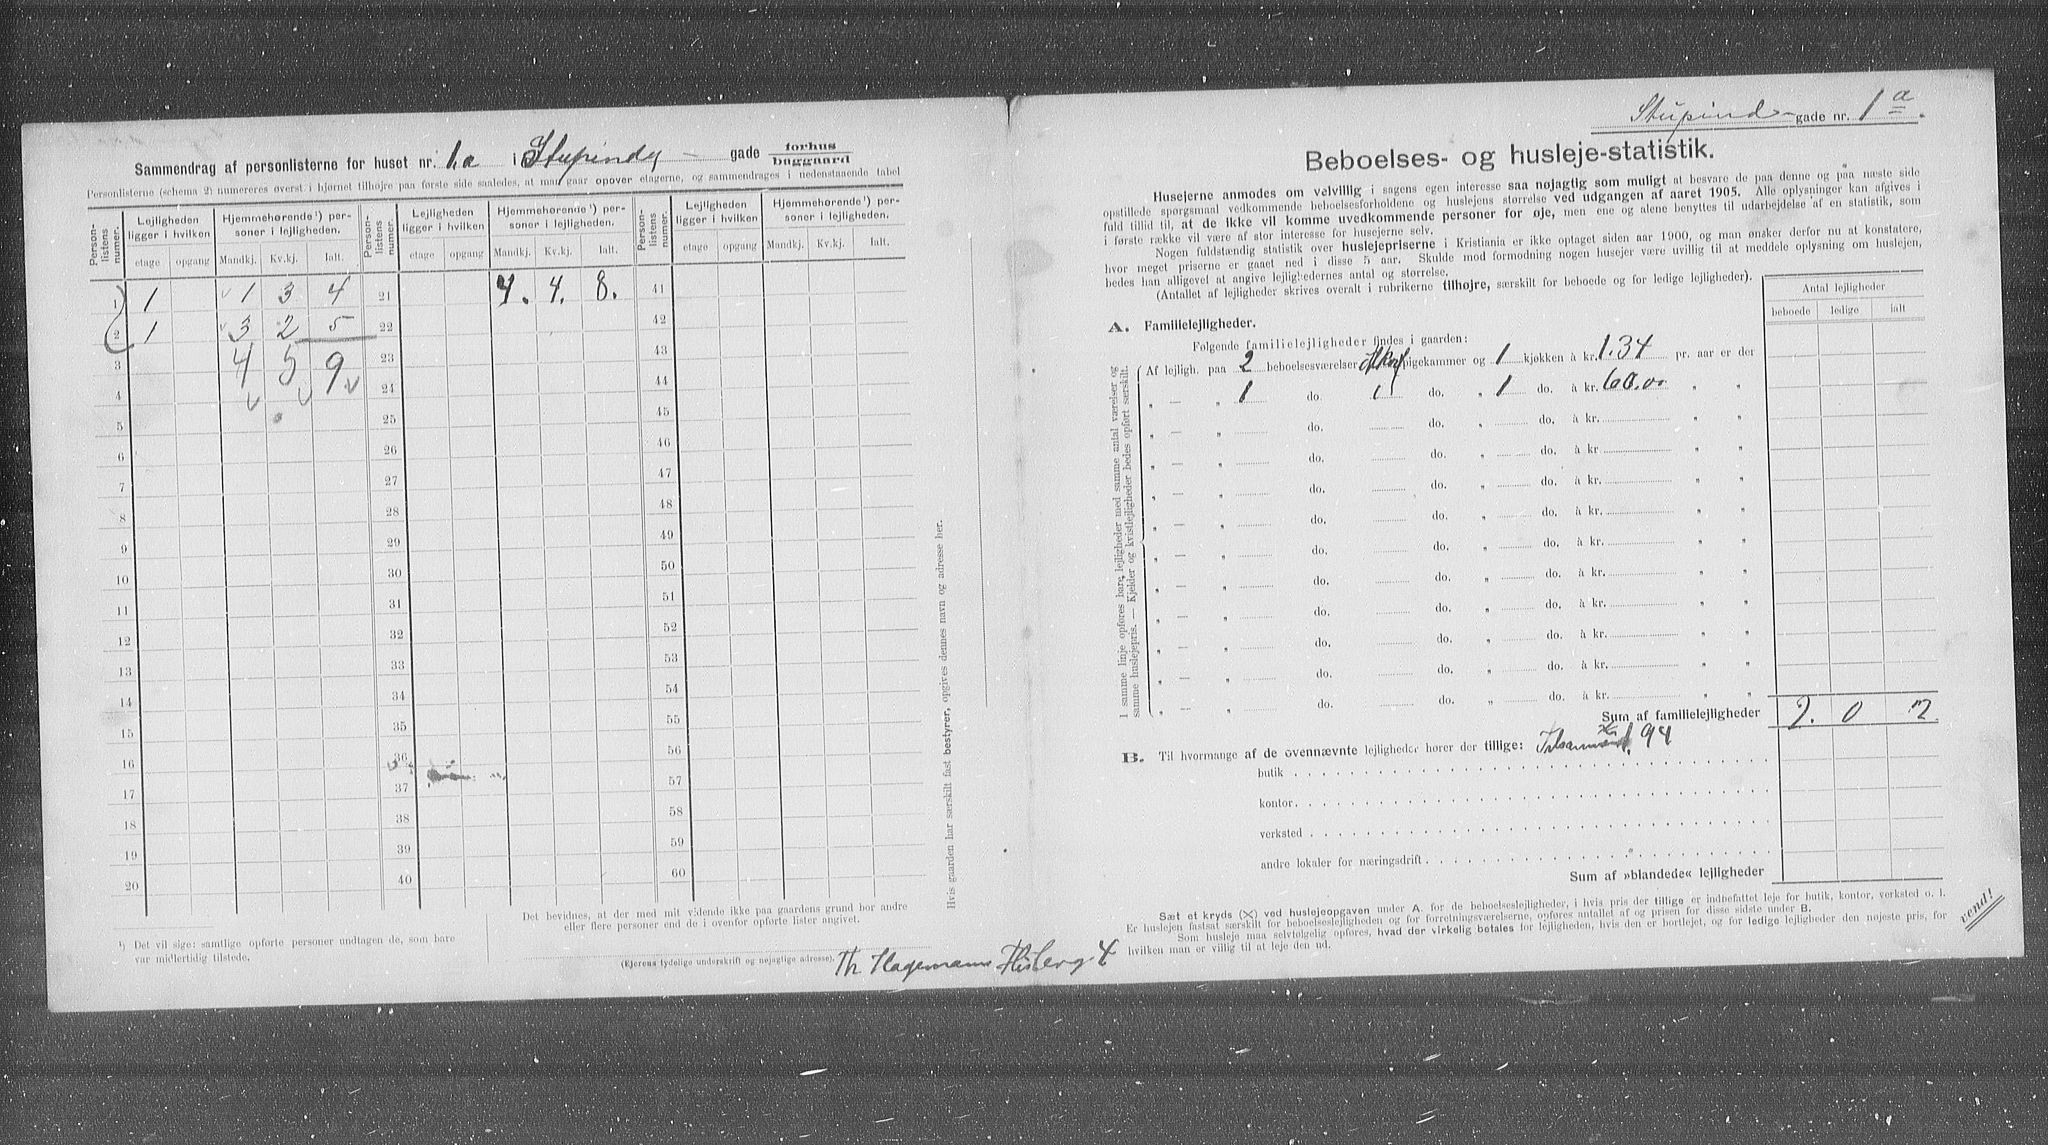 Sammendrag af personlisterne for huset nr. 1a i Stupindg gade forhus
baggaard
Personlisterne (schema 2) numereres øverst i hjørnet tilhøjre paa første side saaledes, at man gaar opover etagerne, og sammendrages i nedenstaaende tabel
Person-listens numer. Lejligheden ligger i hvilken Hjemmehørende¹) personer i lejligheden. Person-listens numer. Lejligheden ligger i hvilken Hjemmehørende¹) personer i lejligheden. Person-listens numer. Lejligheden ligger i hvilken Hjemmehørende¹) personer i lejligheden.
etage opgang Mandkj. Kv.kj. Ialt. etage opgang Mandkj. Kv.kj. Ialt. etage opgang Mandkj. Kv.kj. Ialt.
1 1 1 3 4 21 4. 4. 8. 41
2 1 3 2 5 22 42
3 4 5 9 23 43
4 24 44
5 25 45
6 26 46
7 27 47
8 28 48
9 29 49
10 30 50
11 31 51
12 32 52
13 33 53
14 34 54
15 35 55
16 36 56
17 37 57
18 38 58
19 39 59
20 40 60
Hvis gaarden har særskilt fast bestyrer, opgives dennes navn og adresse her.
¹) Det vil sige: samtlige opførte personer undtagen de, som bare
var midlertidig tilstede.
Det bevidnes, at der med mit vidende ikke paa gaardens grund bor andre
eller flere personer end de i ovenfor opførte lister angivet.
(Ejerens tydelige underskrift og nøjagtige adresse).
Th Hagemann 4
Stupind gade nr. 1 a.
Beboelses- og husleje-statistik.
Husejerne anmodes om velvillig i sagens egen interesse saa nøjagtig som muligt at besvare de paa denne og paa næste side
opstillede spørgsmaal vedkommende beboelsesforholdene og huslejens størrelse ved udgangen af aaret 1905. Alle oplysninger kan afgives i
fuld tillid til, at de ikke vil komme uvedkommende personer for øje, men ene og alene benyttes til udarbejdelse af en statistik, som
i første række vil være af stor interesse for husejerne selv.
Nogen fuldstændig statistik over huslejepriserne i Kristiania er ikke optaget siden aar 1900, og man ønsker derfor nu at konstatere,
hvor meget priserne er gaaet ned i disse 5 aar. Skulde mod formodning nogen husejer være uvillig til at meddele oplysning om huslejen,
bedes han alligevel at angive lejlighedernes antal og størrelse.
(Antallet af lejligheder skrives overalt i rubrikerne tilhøjre, særskilt for beboede og for ledige lejligheder).
Antal lejligheder
beboede ledige ialt
A. Familielejligheder.
Følgende familielejligheder findes i gaarden:
Af lejligh. paa 2 beboelsesværelser pigekammer og 1 kjøkken à kr. 134 pr. aar er der
„ — „ 1 do. 1 do. „ 1 do. à kr. 60.00 „ „
„ — „ do. do. „ do. à kr. „ „
„ — „ do. do. „ do. à kr. „ „
„ — „ do. do. „ do. à kr. „ „
„ — „ do. do. „ do. à kr. „ „
„ — „ do. do. „ do. à kr. „ „
„ — „ do. do. „ do. à kr. „ „
„ — „ do. do. „ do. à kr. „ „
„ — „ do. do. „ do. à kr. „ „
„ — „ do. do. „ do. à kr. „ „
„ — „ do. do. „ do. à kr. „ „
I samme linje opføres bare lejligheder med samme antal værelser og
samme huslejepris. — Kjelder og kvistlejligheder bedes opført særskilt.
Sum af familielejligheder 2. 0 2.
B. Til hvormange af de ovennævnte lejligheder hører der tillige: 94
butik
kontor.
verksted
andre lokaler for næringsdrift
Sum af »blandede« lejligheder
Sæt et kryds (X) ved huslejeopgaven under A. for de beboelseslejligheder, i hvis pris der tillige er indbefattet leje for butik, kontor, verksted o. l.
Er huslejen fastsat særskilt for beboelseslejligheden og for forretningsværelserne, opføres antallet af og prisen for disse sidste under B.
Som husleje maa selvfølgelig opføres, hvad der virkelig betales for lejligheden, hvis den er bortlejet, og for ledige lejligheder den nøjeste pris, for
hvilken man er villig til at leje den ud.
vend!